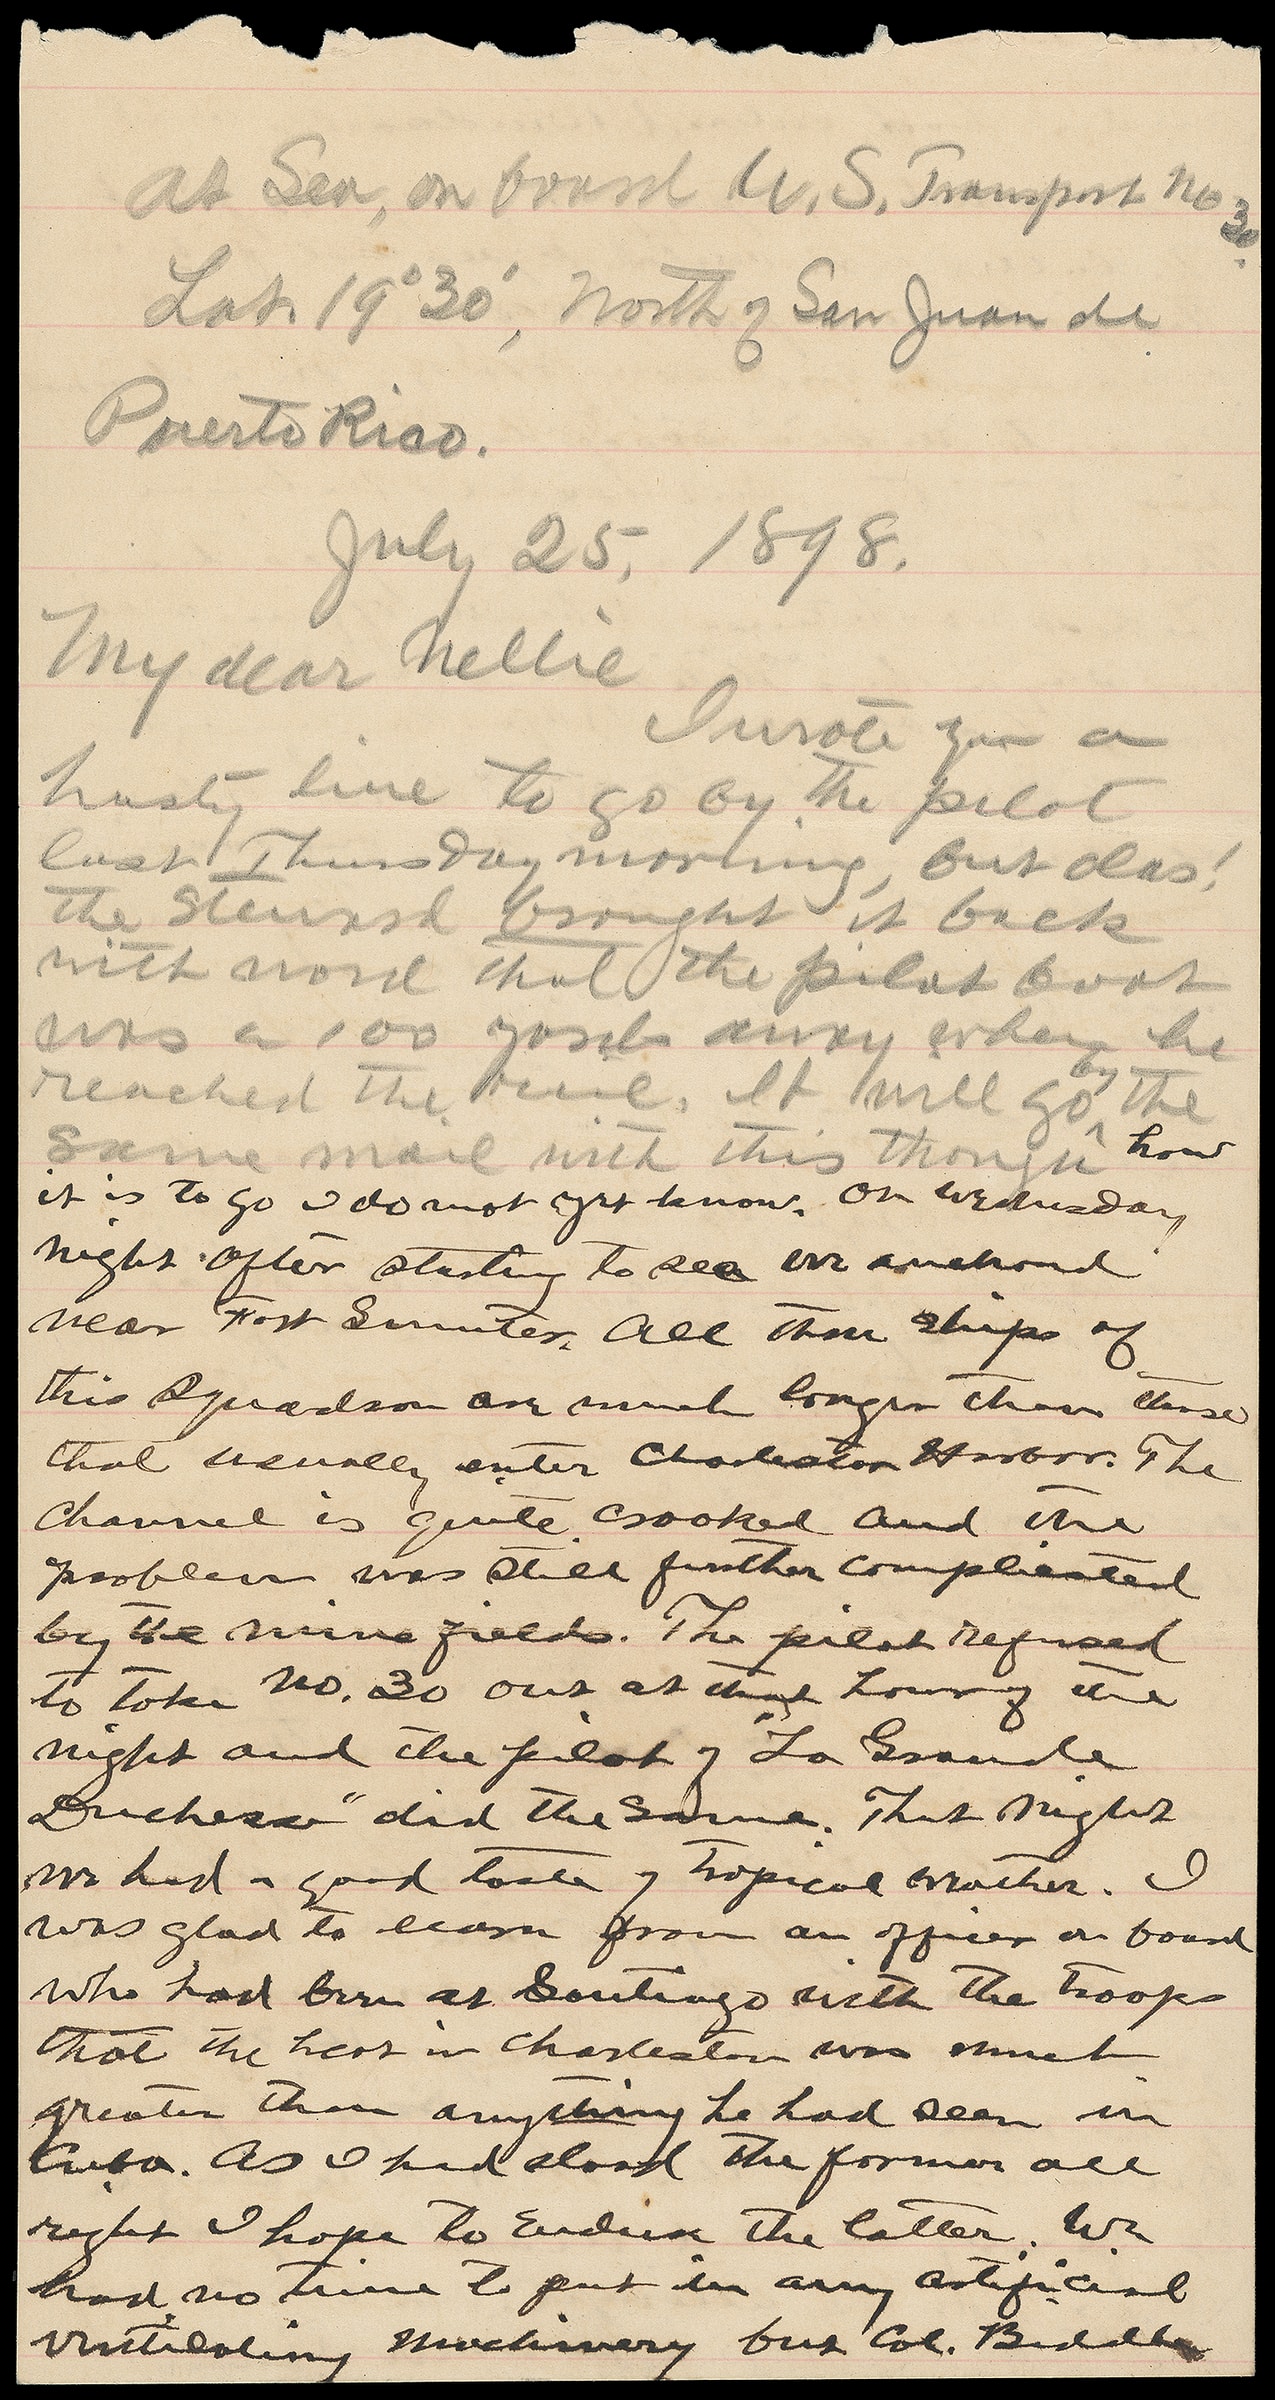 At Sea, on board U.S. Transport No 30.
Lat. 19°30', North of San Juan de
Puerto Rico.
July 25, 1898.
My dear Nellie
I wrote you a
hasty line to go by the pilot
last Thursday morning, but alas!
the steward brought it back
with word that the pilot boat
was a 100 yards away when he
reached the rail. It will go by the
same mail with this though how
it is to go I do not yet know. On Wednesday
night after starting to sea we anchored
near Fort Sumter. All these ships of
this Squadron are much longer than those
that usually enter Charleston Harbor. The
channel is quite crooked and the
problem was still further complicated
by the mine fields. The pilot refused
to take No. 30 out at that hour of the
night and the pilot of "La Grande
Duchesse" did the same. That night
we had a good taste of tropical weather. I
was glad to learn from an officer on board
who had been at Santiago with the troops
that the heat in Charleston was much
greater than anything he had seen in
Cuba. As I had stood the former all
right I hope to endure the latter. We
had no time to put in any artificial
ventilating machinery but Col. Biddle